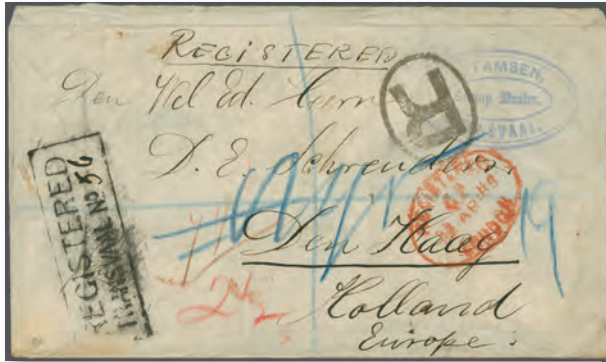 REGISTERED
TAMSEN,
Stamp Dealer,
Den Wel Ed. Heer
R
D. E. Schreuders
REGISTERED
TRANSVAAL No 56
REGISTERED
AP 89
LONDON
Den Haag
Holland
Europe.